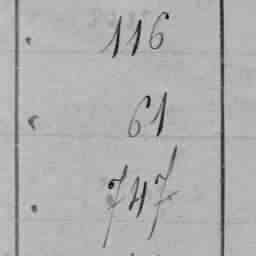 116
61
747